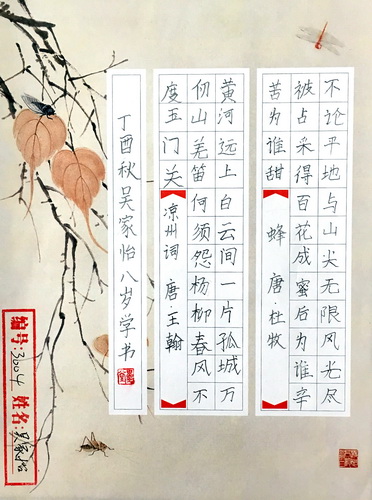 不论平地与山尖无限风光尽
被占采得百花成蜜后为谁辛
苦为谁甜 蜂 唐·杜牧
黄河远上白云间一片孤城万
仞山羌笛何须怨杨柳春风不
度玉门关 凉州词 唐·王翰
丁酉秋吴家怡八岁学书
编号:3004 姓名:吴家怡